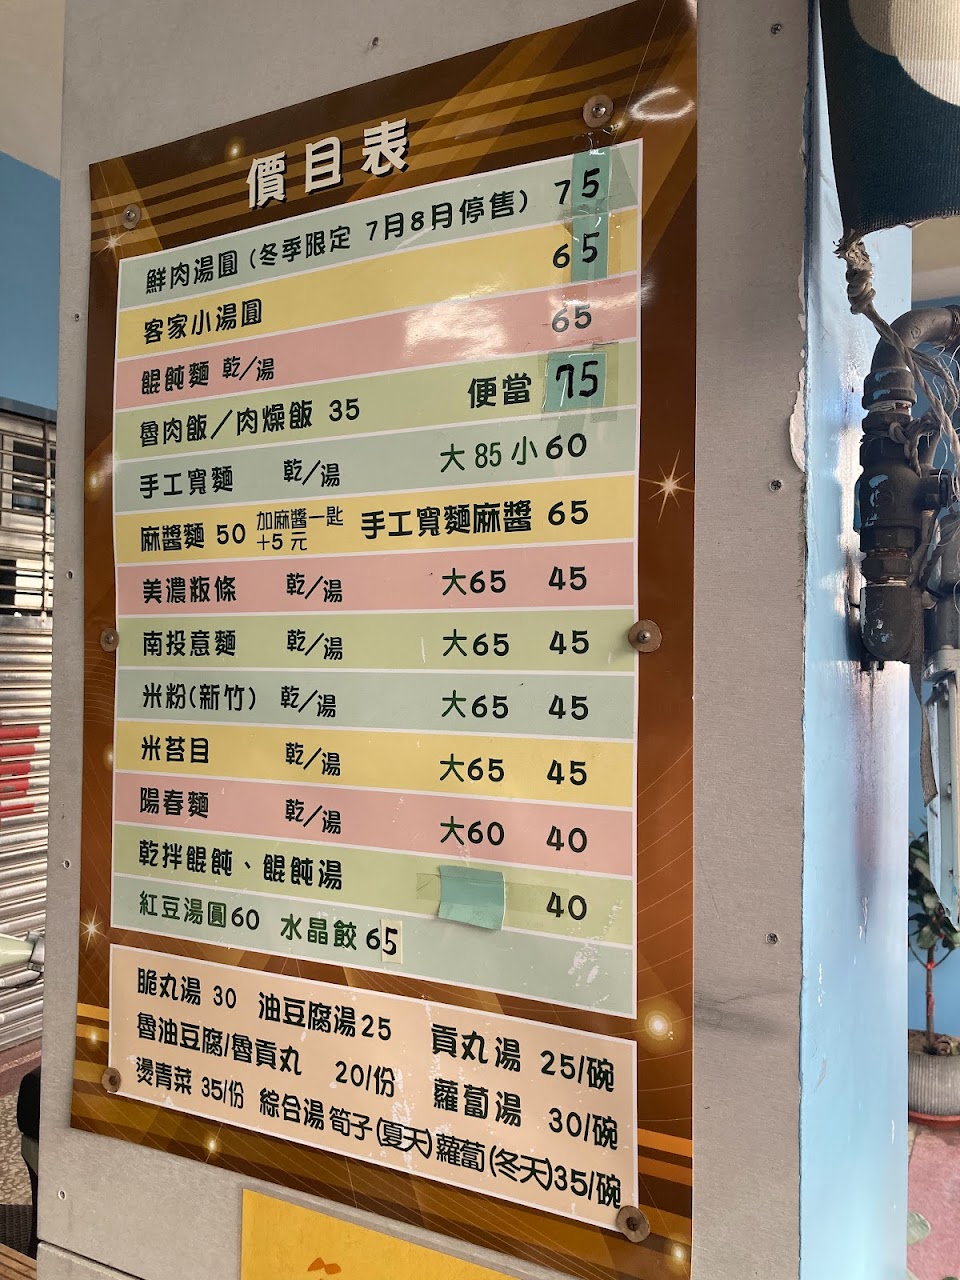 價目表
鮮肉湯圓（冬季限定 7月8月停售） 75
客家小湯圓 65
餛飩麵 乾／湯 65
魯肉飯／肉燥飯 35 便當 75
手工寬麵 乾／湯 大85 小60
麻醬麵 50 加麻醬一匙 +5元 手工寬麵麻醬 65
美濃粄條 乾／湯 大65 45
南投意麵 乾／湯 大65 45
米粉(新竹) 乾／湯 大65 45
米苔目 乾／湯 大65 45
陽春麵 乾／湯 大60 40
乾拌餛飩、餛飩湯 40
紅豆湯圓60 水晶餃65
脆丸湯 30 油豆腐湯25 貢丸湯 25/碗
魯油豆腐/魯貢丸 20/份 蘿蔔湯 30/碗
燙青菜 35/份 綜合湯 筍子(夏天)蘿蔔(冬天)35/碗